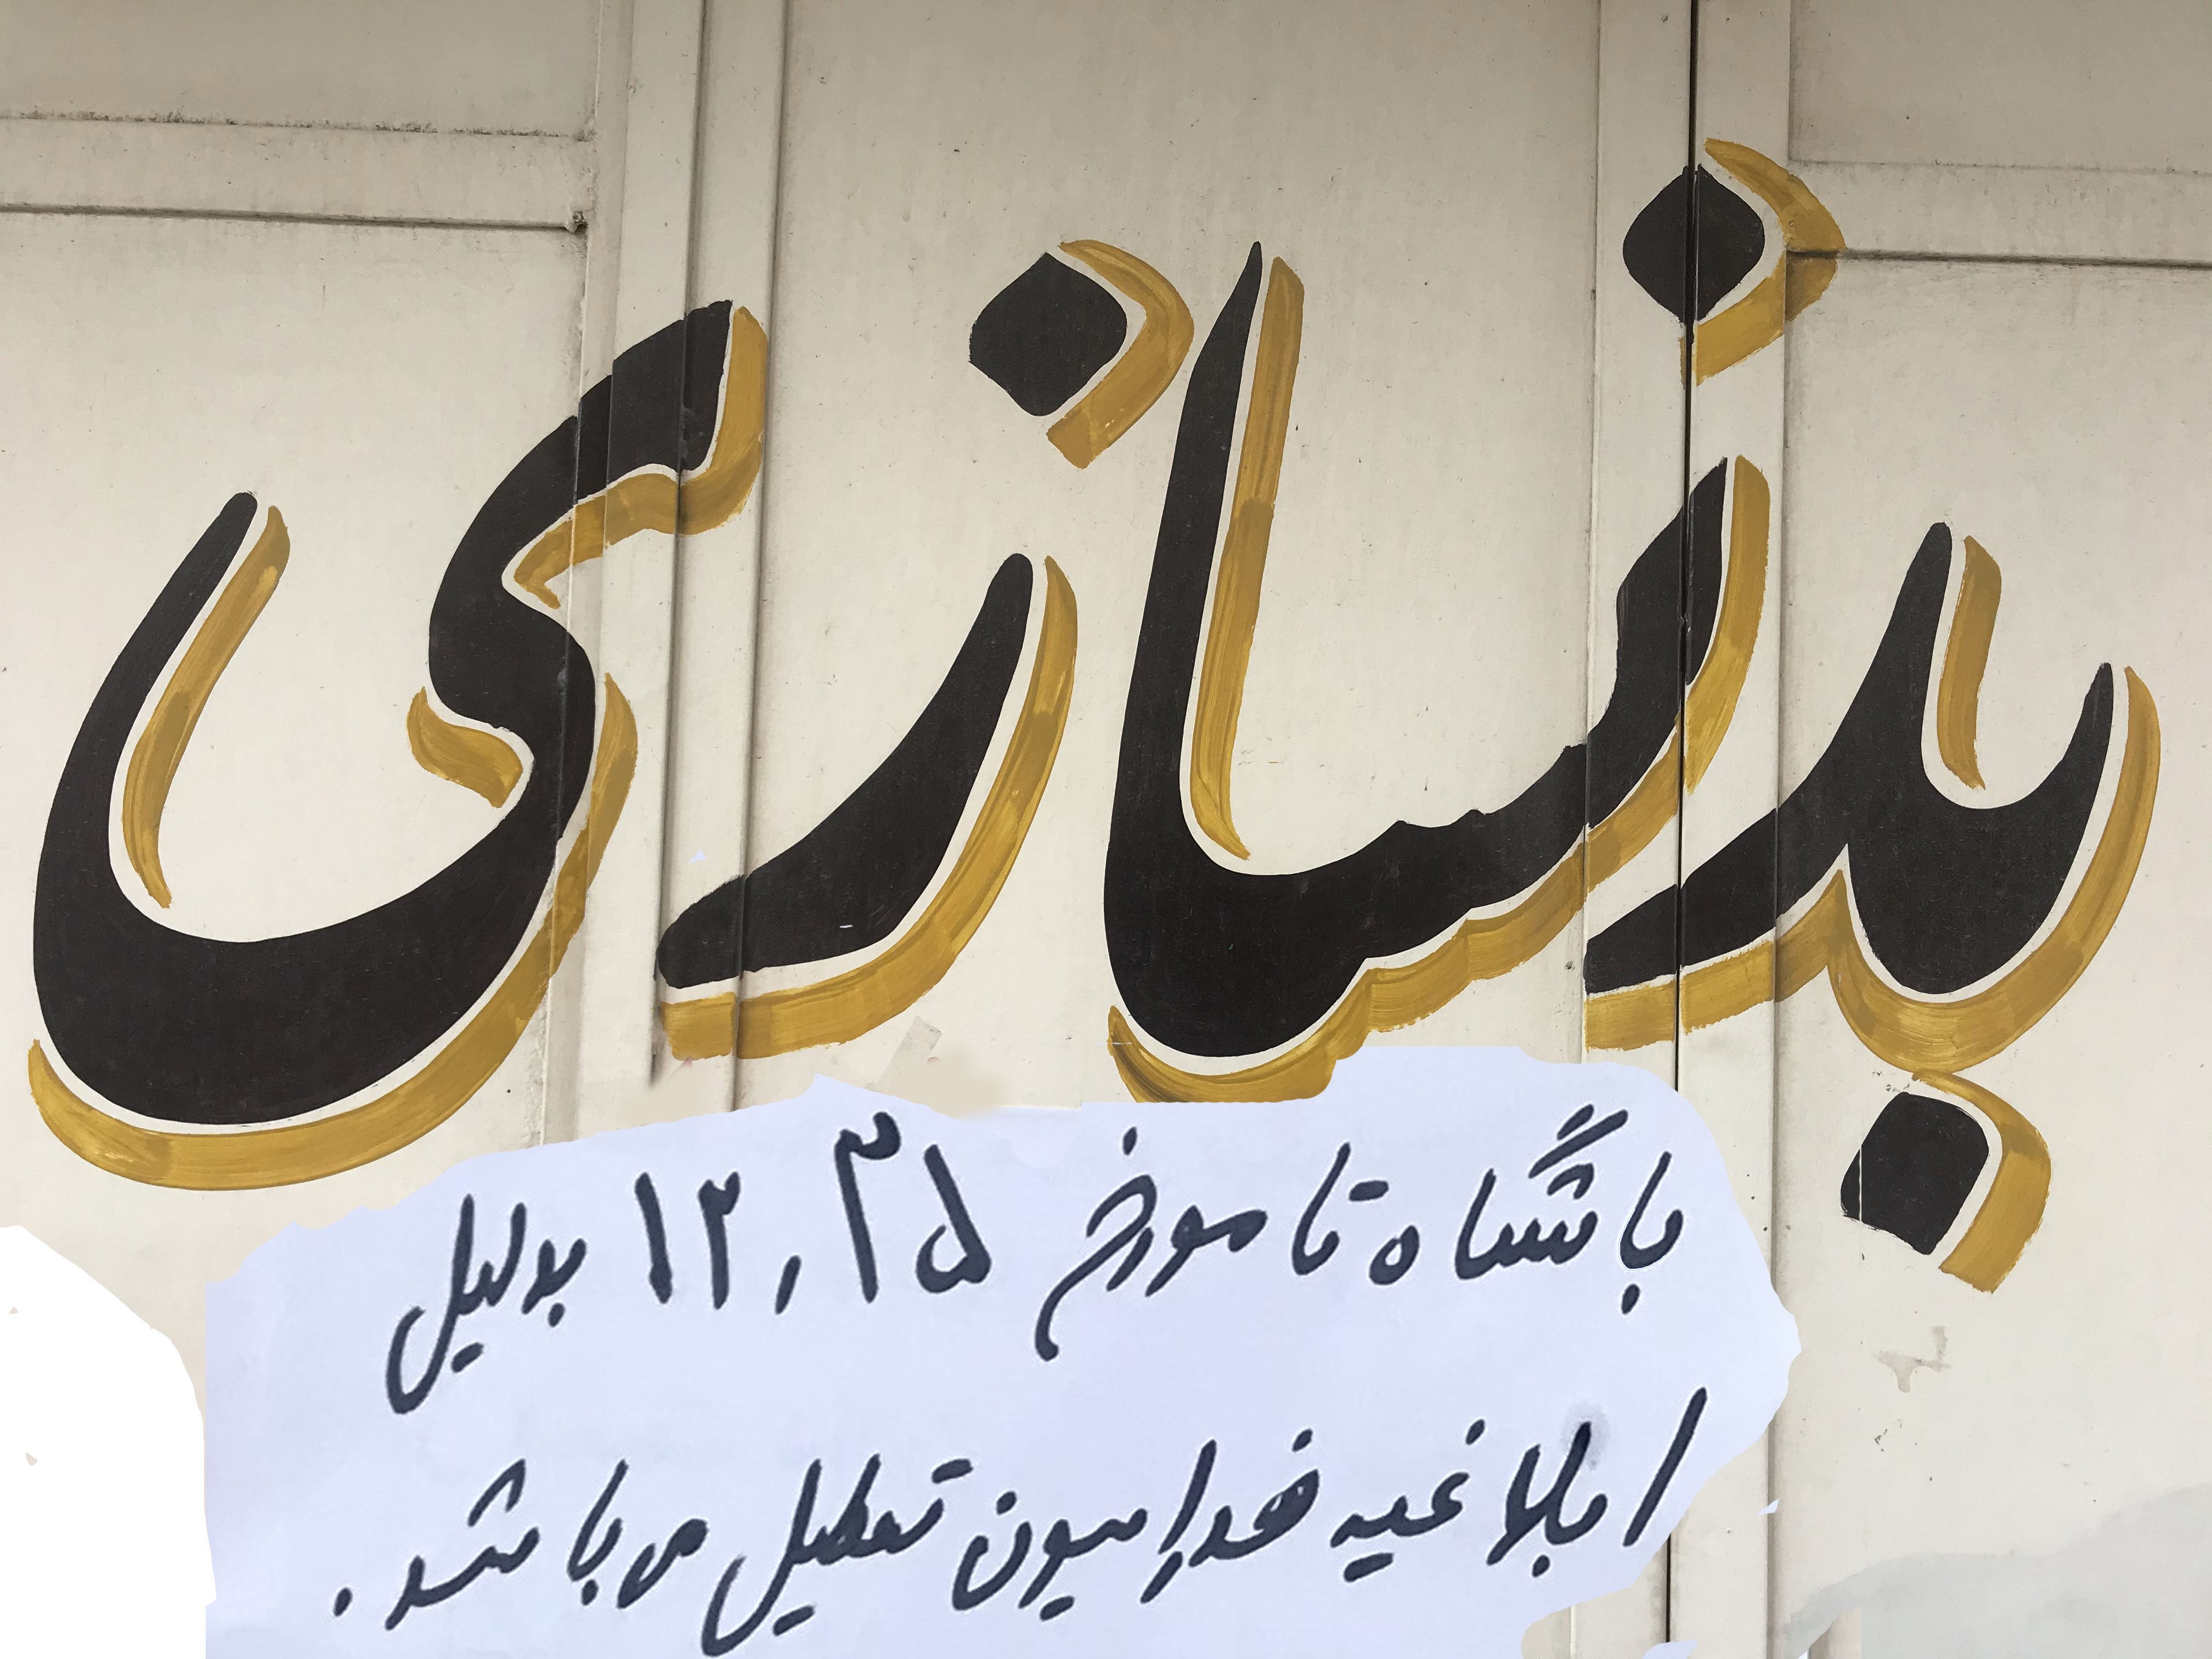 بدنسازی
باشگاه تا مورخ ۱۲٫۳۵ بدلیل
ابلاغیه فدراسیون تعطیل می باشد.